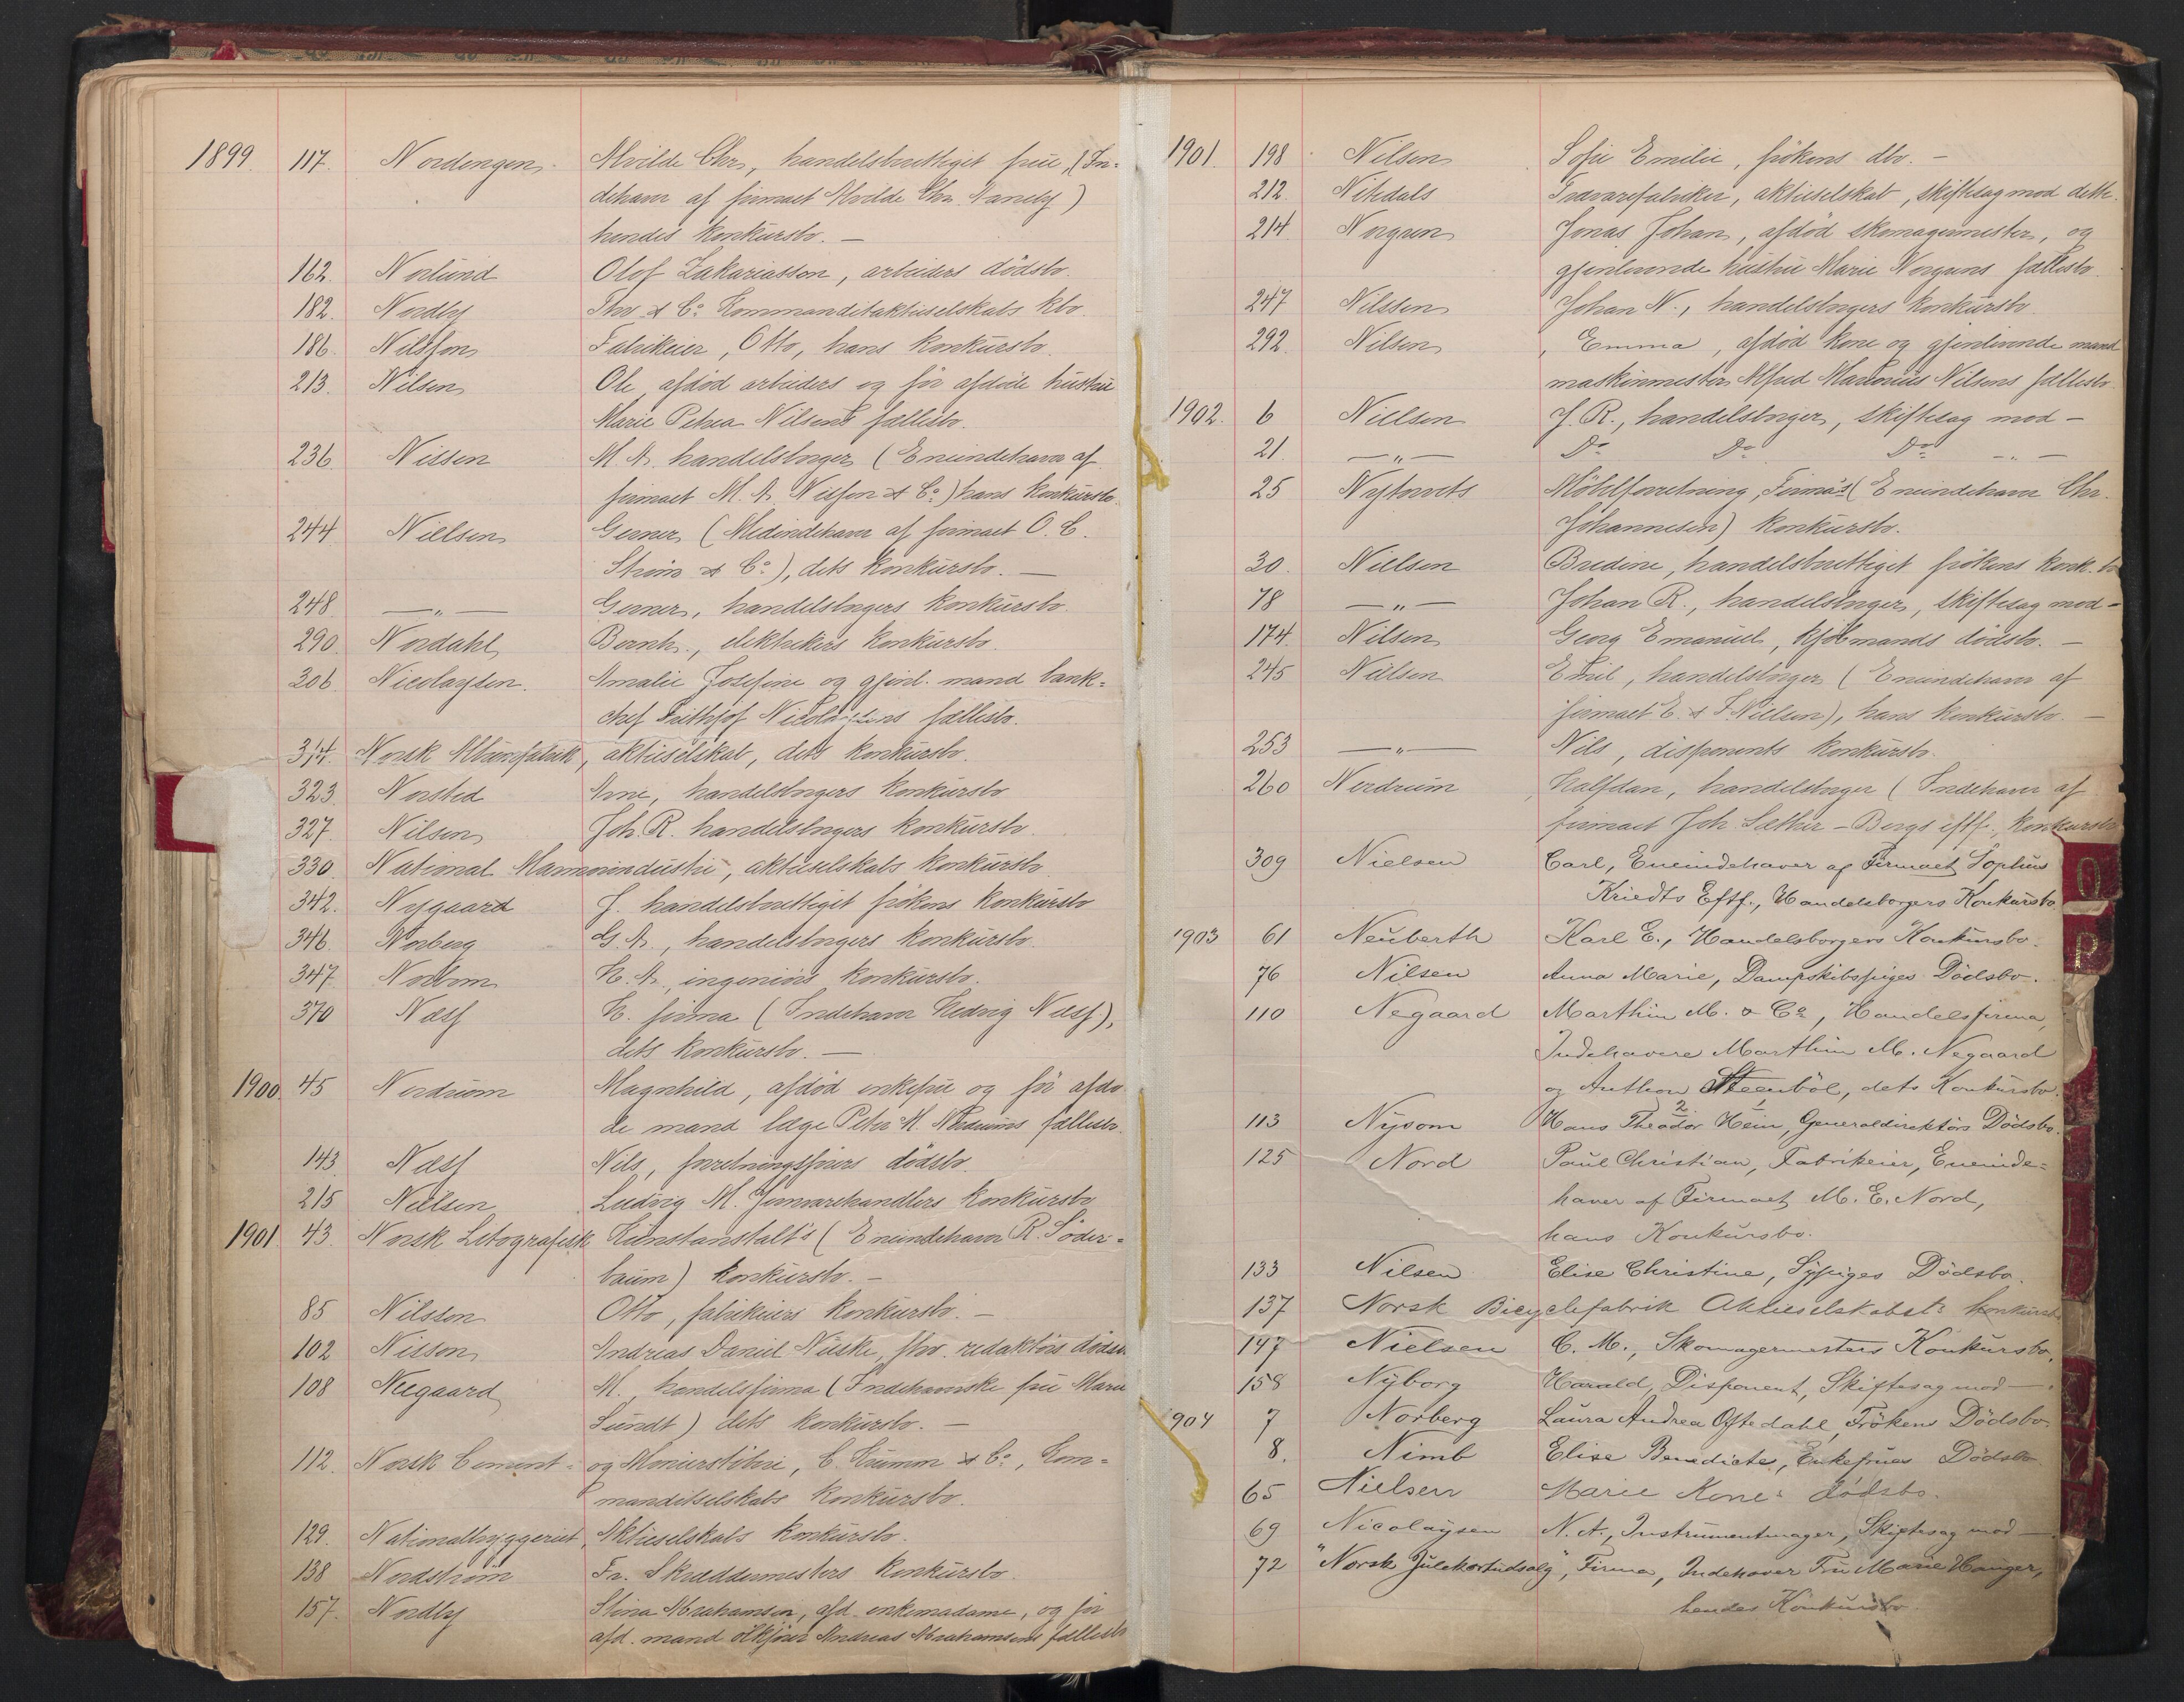 1899. 117. Nordengen. Alvilde Chr., handelsberettiget frue, (In-
dehaver af firmaet Alvilde Chr. Nanely)
hendes konkursbo. —
162. Norlund Olof Zakariasson, arbeiders dödsbo.
182. Nordby Thv. & Co. Kommanditaktieselskabs kbo.
186. Nilsson Fabrikeier, Otto, hans konkursbo.
213. Nilsen Ole, afdöd arbeiders og för afdöde hustru
Marie Petrea Nilsens fællesbo.
236. Nissen M. A. handelsborger (Eneindehaver af
firmaet M. A. Nissen & Co.) hans konkursbo.
244 Nielsen Gerner (Medindehaver af firmaet O. C.
Ström & Co.), dets konkursbo. —
248 — " — Gerner, handelsborgers konkursbo.
290. Nordahl Bernh., elektrikers konkursbo.
306. Nicolaysen. Amalie Josefine og gjenl. mand bank-
chef Frithjof Nicolaysens fællesbo.
314. Norsk Albumfabrik, aktieselskab, dets konkursbo.
323. Norsted Arne, handelsborgers konkursbo
327. Nilsen Joh. R. handelsborgers konkursbo.
330. National Marmorindustri, aktieselskabs konkursbo
342. Nygaard J. handelsberettiget frökens konkursbo
346. Norberg G. A., handelsborgers konkursbo.
347. Norbom H. A., ingeniörs konkursbo.
370 Næss H. firma (Indehaver Hedvig Næss),
dets konkursbo. —
1900. 45 Nerdrum Magnhild, afdöd enkefrue og för afdö
de mand læge Peter M. Nerdrums fællesbo.
143. Næss Nils, forretningsförers dödsbo.
215 Nielsen Ludvig M. Jernvarehandlers konkursbo
1901 43. Norsk Litografisk Kunstanstalt's (Eneindehaver R. Söder-
baum) konkursbo. —
85 Nilsson Otto, fabrikeiers konkursbo. —
102 Nissen Andreas Daniel, fhv. redaktörs dödsbo
108 Neegaard M. handelsfirma (Indehaverske frue Marie
Sundt) dets konkursbo. —
112. Norsk Cement- og Monierstöberi, C. Kumm & Co., Kom-
manditselskabs konkursbo.
129. Nationalbryggeriet, Aktieselskabs konkursbo.
138 Nordström Fr. Skræddermesters konkursbo.
157. Nordby Stina Abrahamsen, afd. enkemadame, og för
afd. mand ölkjörer Andreas Abrahamsens fællesbo
1901. 198 Nilsen Sofie Emilie, frökens dbo. —
212. Nitedals Trævarefabriker, aktieselskab, skiftesag mod dette.
214 Norgren Jonas Johan, afdöd skomagermester, og
gjenlevende hustru Marie Norgrens fællesbo.
247 Nilssen Johan N., handelsborgers konkursbo.
292. Nilsen, Emma, afdöd kone og gjenlevende mand
maskinmester Alfred Martinius Nilsens fællesbo.
1902. 6 Nielsen J. R., handelsborger, skiftesag mod —
21. — " — Do Do Do — " —
25 Nytorvets Möbelforretning, Firma's (Eneindehaver Chr.
Johannesen) konkursbo.
30. Nielsen Bredine, handelsberettiget frökens konk. bo
78 — " — Johan R., handelsborger, skiftesag mod —
174. Nilsen Georg Emanuel, kjöbmands dödsbo. —
245 Nielsen Emil, handelsborger (Eneindehaver af
firmaet E. & F. Nielsen), hans konkursbo. —
253 — " — Nils, disponents konkursbo.
260 Nerdrum, Halfdan, handelsborger (Indehaver af
firmaet Joh. Sæther-Bergs eftf., konkursbo
309 Nielsen Carl, Eneindehaver af Firmaet Sophus
Kriedts Eftf., Handelsborgers Konkursbo.
1903 61 Neuberth Karl E., Handelsborgers Konkursbo.
76 Nilsen Anna Marie, Dampskibspiges Dödsbo.
110 Negaard Marthin M. & Co, Handelsfirma,
Indehavere Marthin M. Negaard
og Anthon Steenböl, dets Konkursbo.
113 Nysom Hans Theodor Hein, Generaldirektörs Dödsbo.
125 Nord Paul Christian, Fabrikeier, Eneinde-
haver af Firmaet M. E. Nord,
hans Konkursbo.
133 Nilsen Elise Christine, Sypiges Dödsbo.
137 Norsk Bicyclefabrik Aktieselskabets konkursbo
147 Nielsen C. M., Skomagermesters Konkursbo.
158 Nyborg Harald, Disponent, Skiftesag mod —
1904 7 Norberg Laura Andrea Oftedahl, Frökens Dödsbo.
8. Nimb Elise Benedicte, Enkefrues Dödsbo
65 Nielsen Marie Kones dödsbo.
69 Nicolaysen N. A., Instrumentmager, Skiftesag mod —
72 "Norsk Julekortudsalg", Firma, Indehaver Fru Marie Hanger,
hendes Konkursbo
O
P